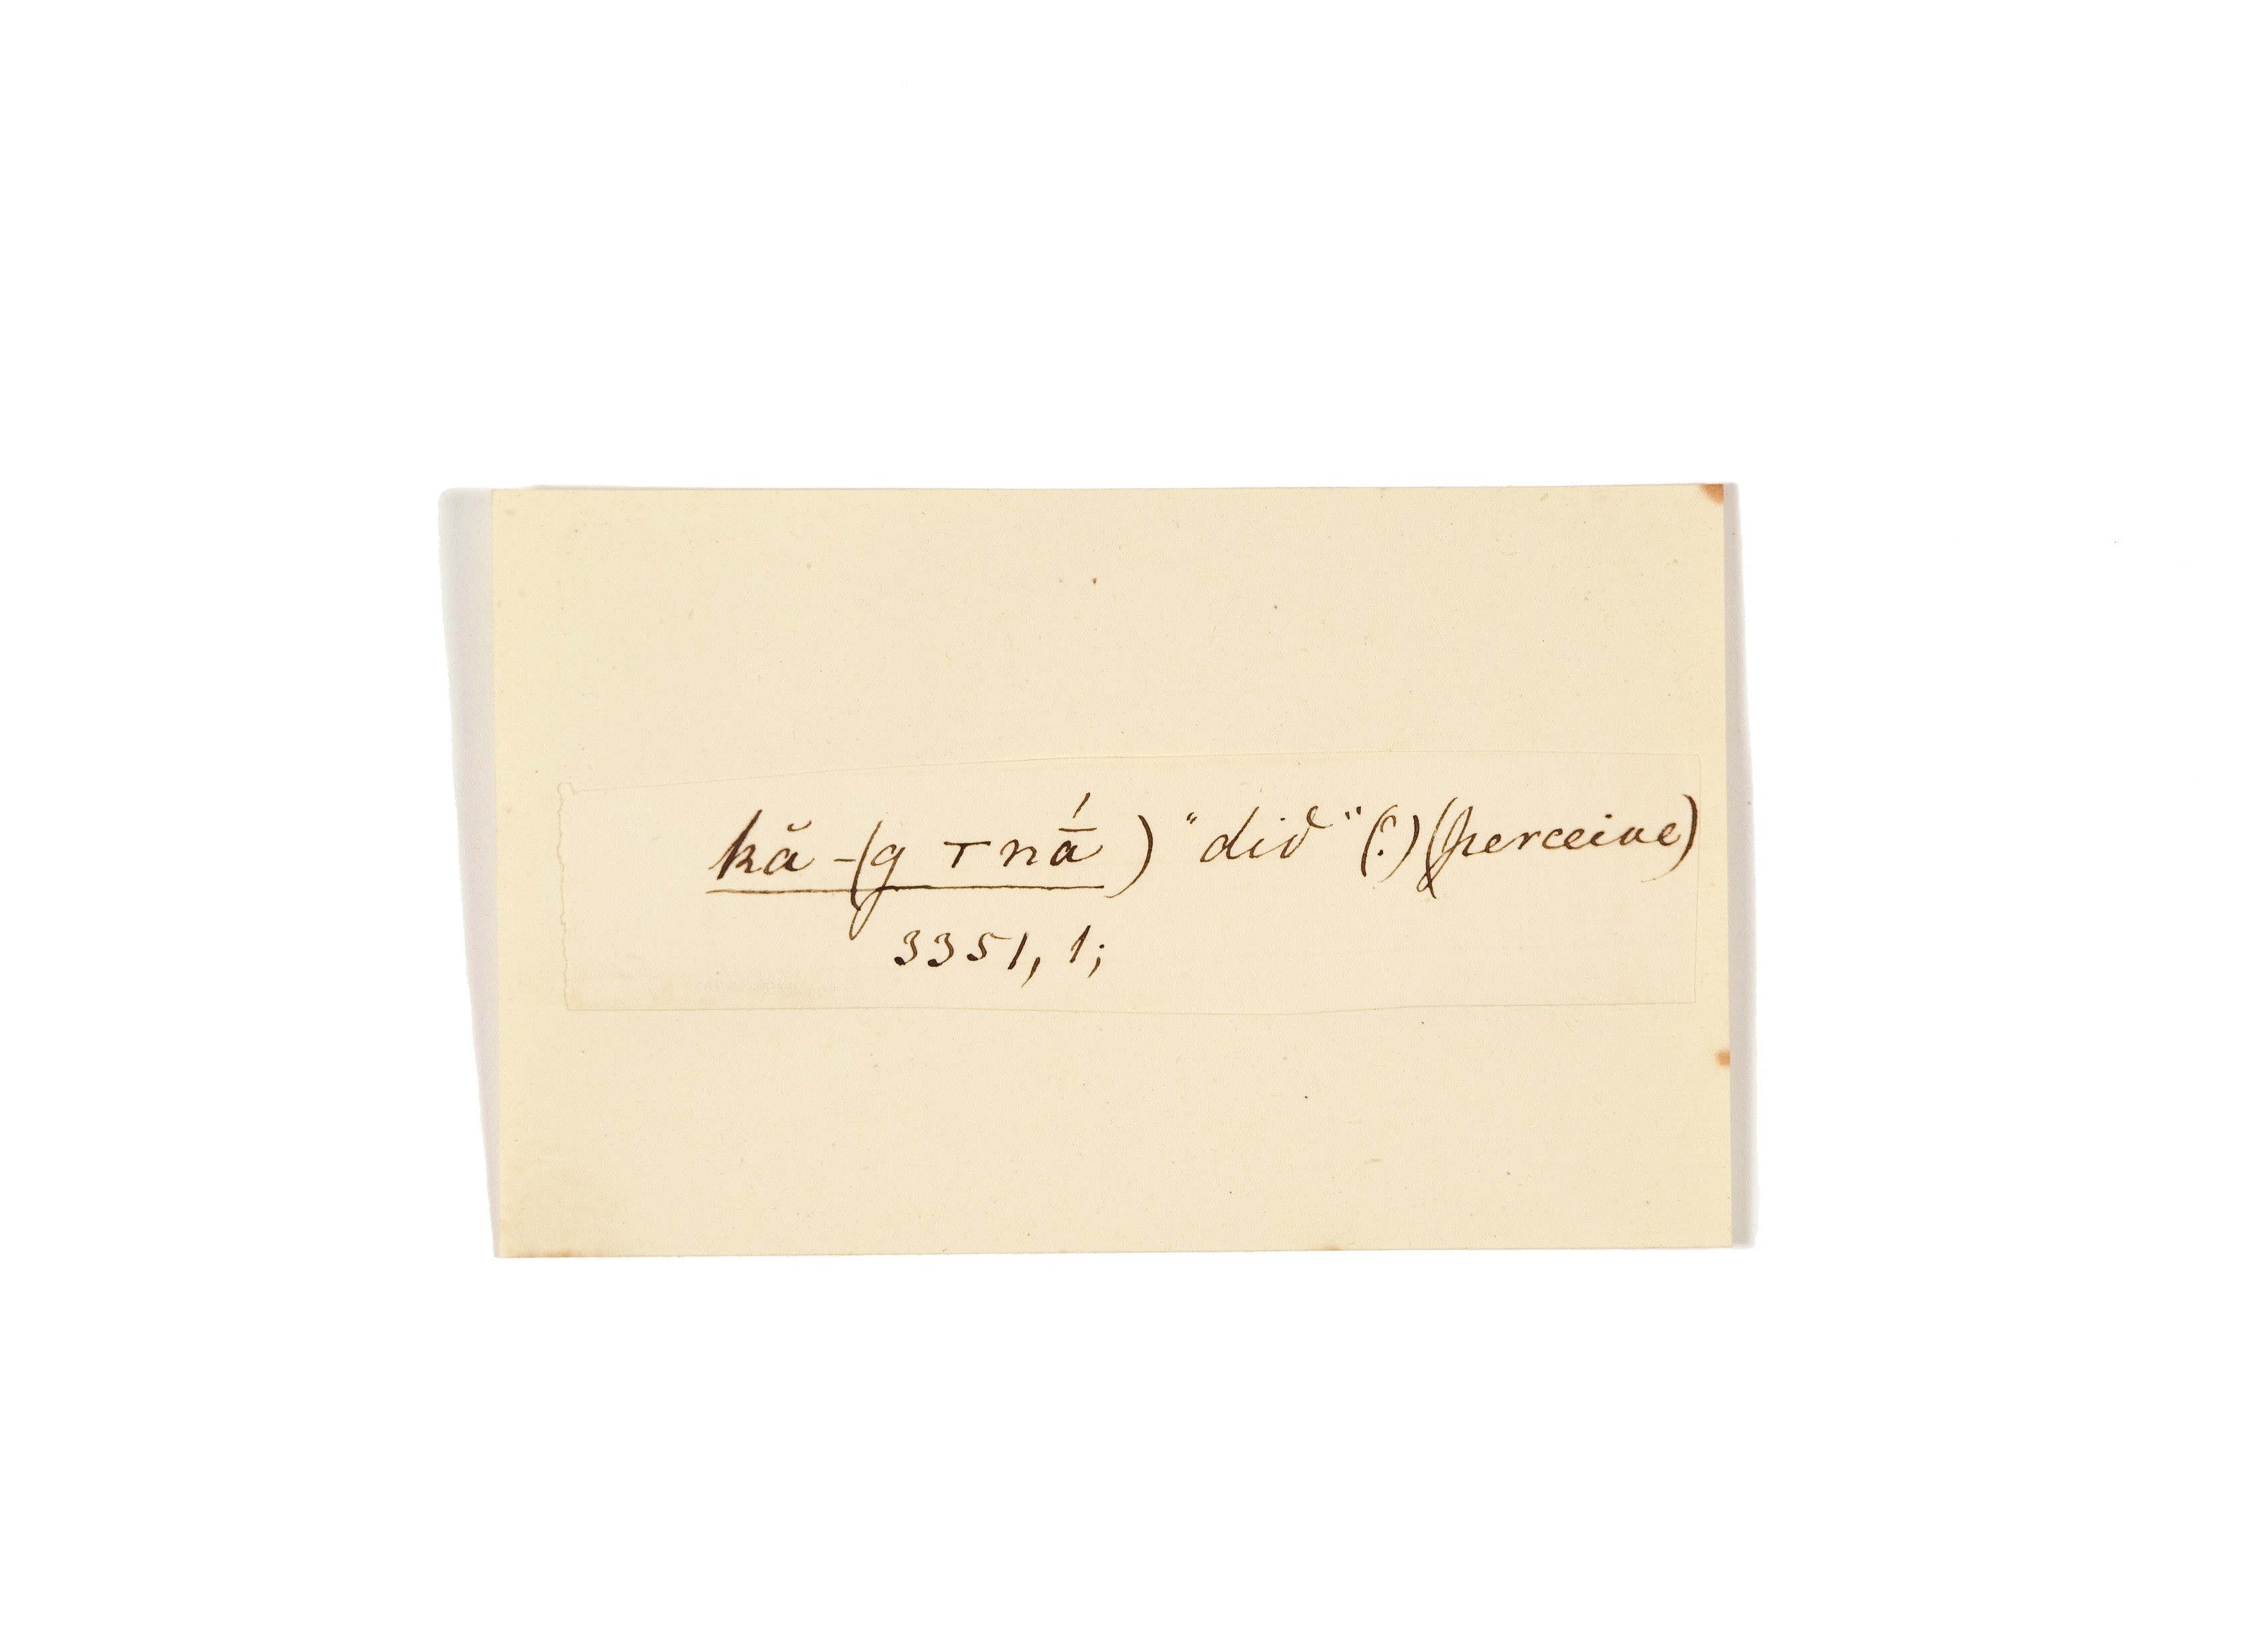 kă-(g ᴛ nā́) "did" (?) (perceive)
3351, 1;